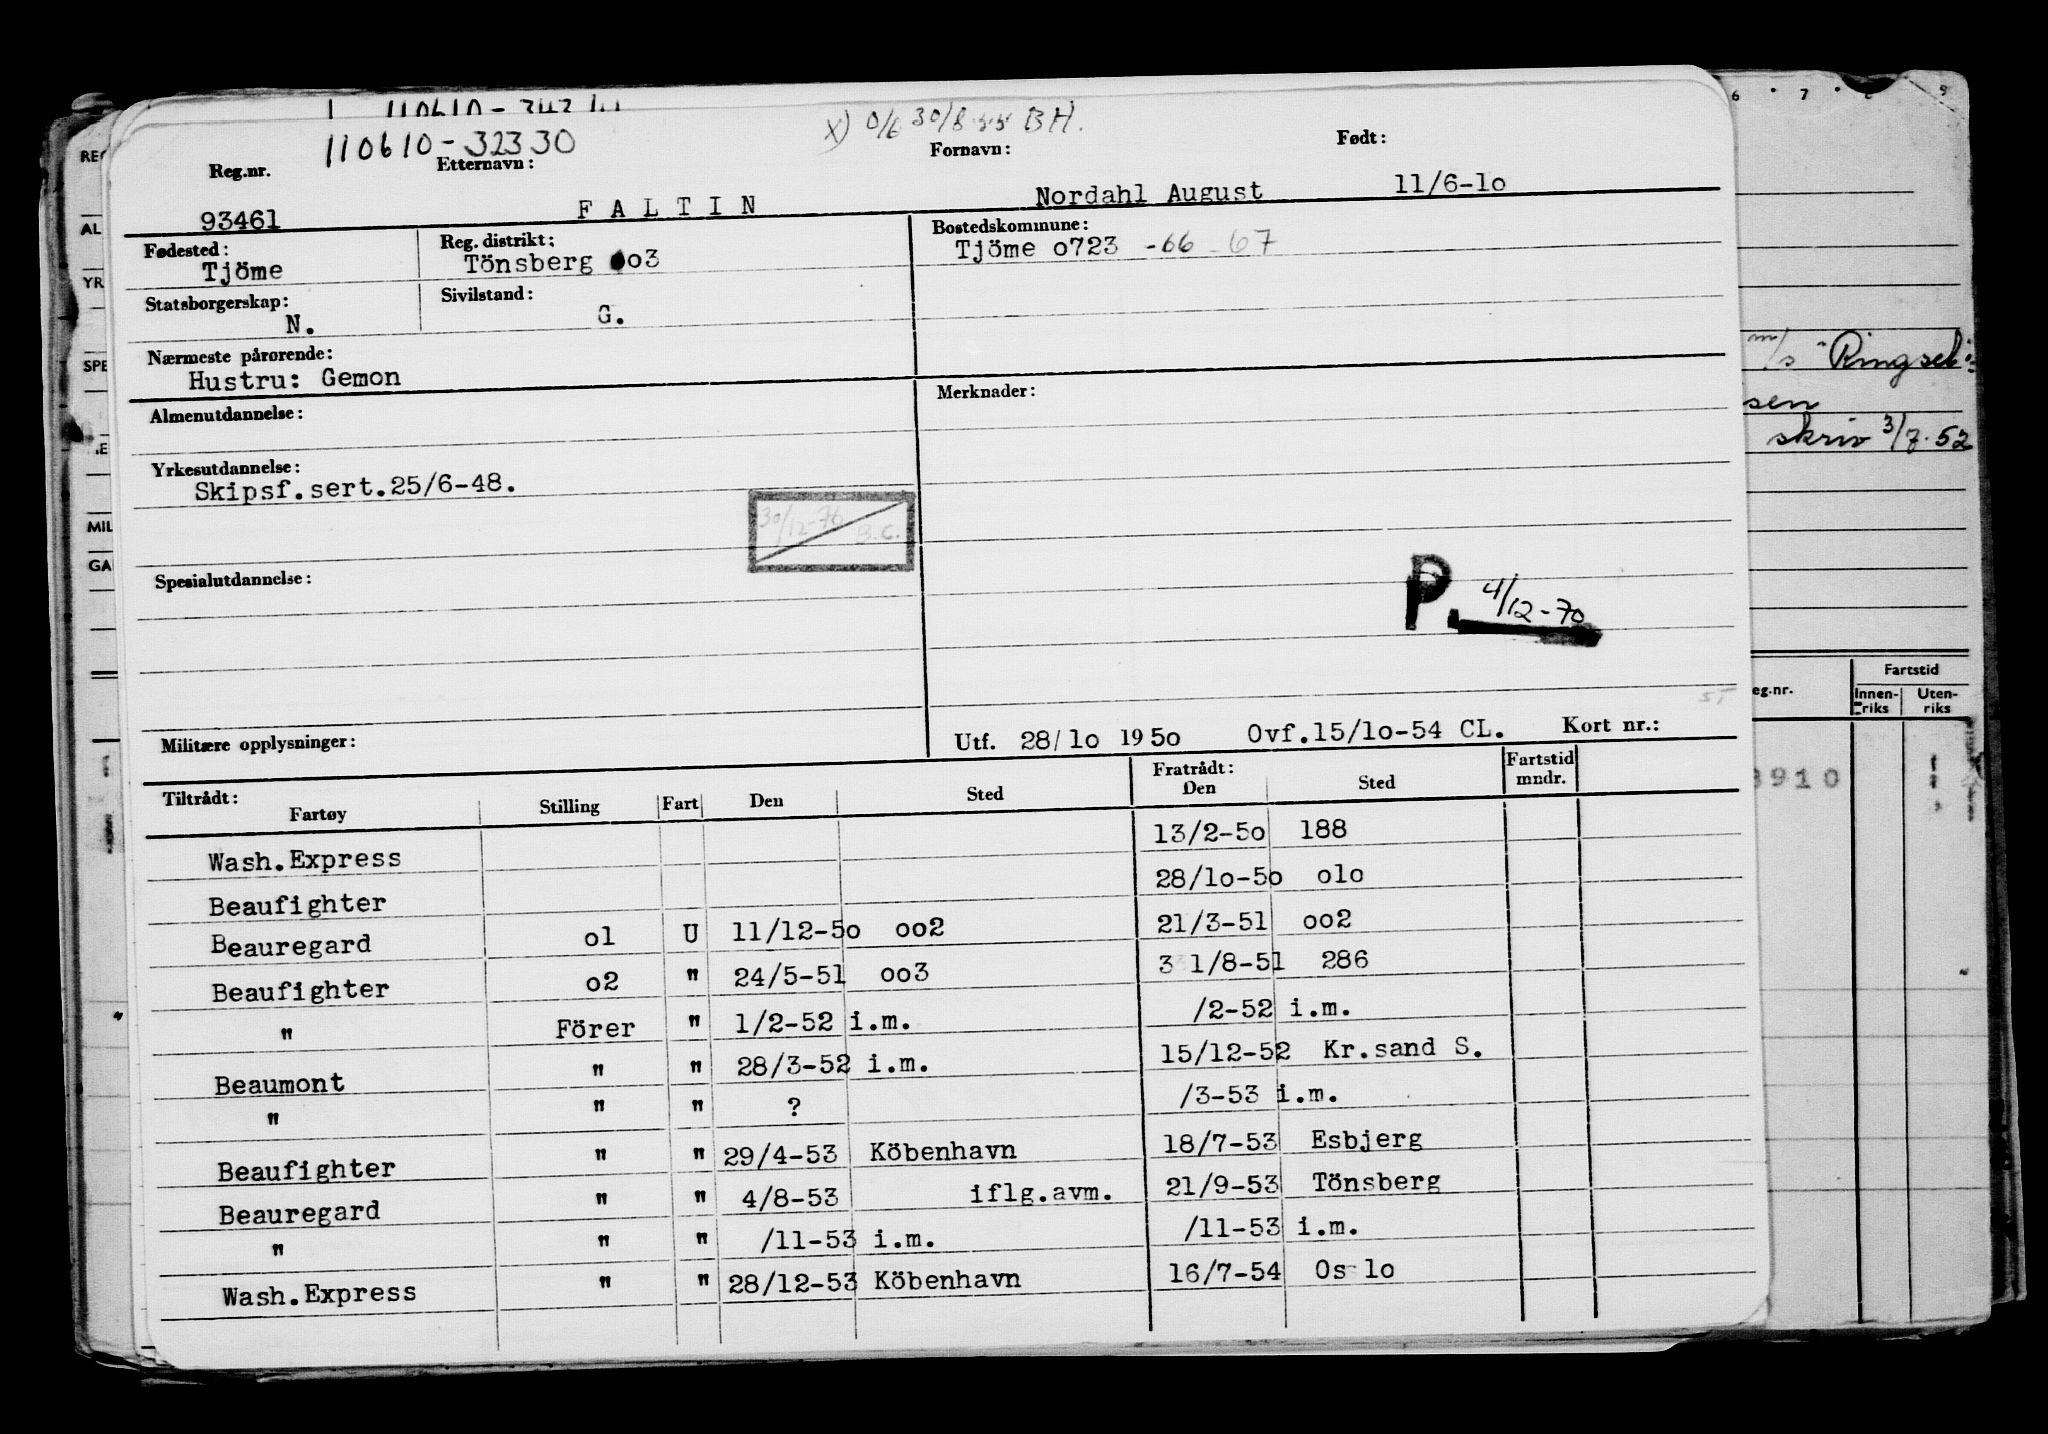 110610-32330 X) 0/6 30/8-55 BH.
Reg.nr. Etternavn: Fornavn: Født:
93461 FALTIN Nordahl August 11/6-1o
Fødested: Reg. distrikt: Bostedskommune:
Tjöme Tönsberg oo3 Tjöme o723 -66 -67
Statsborgerskap: Sivilstand:
N. G.
Nærmeste pårørende:
Hustru: Gemon
Almenutdannelse: Merknader:
Yrkesutdannelse:
Skipsf.sert.25/6-48.
30/12-76 B.C.
Spesialutdannelse:
P. 4/12-70
Militære opplysninger: Utf. 28/1o 1950 Ovf.15/1o-54 CL. Kort nr.:
Tiltrådt: Fratrådt: Fartstid mndr.
Fartøy Stilling Fart Den Sted Den Sted
Wash.Express 13/2-5o 188
Beaufighter 28/1o-5o o1o
Beauregard o1 U 11/12-5o oo2 21/3-51 oo2
Beaufighter o2 " 24/5-51 oo3 31/8-51 286
" Förer " 1/2-52 i.m. /2-52 i.m.
Beaumont " " 28/3-52 i.m. 15/12-52 Kr.sand S.
" " " ? /3-53 i.m.
Beaufighter " " 29/4-53 Köbenhavn 18/7-53 Esbjerg
Beauregard " " 4/8-53 iflg.avm. 21/9-53 Tönsberg
" " " /11-53 i.m. /11-53 i.m.
Wash.Express " " 28/12-53 Köbenhavn 16/7-54 Oslo
6 7 8 9
m/s "Ringsel"
sen
skriv 3/7-52
eg.nr. Fartstid
Innen-riks Uten-riks
8910
REG
AL
YR
SPE
MIL
GA